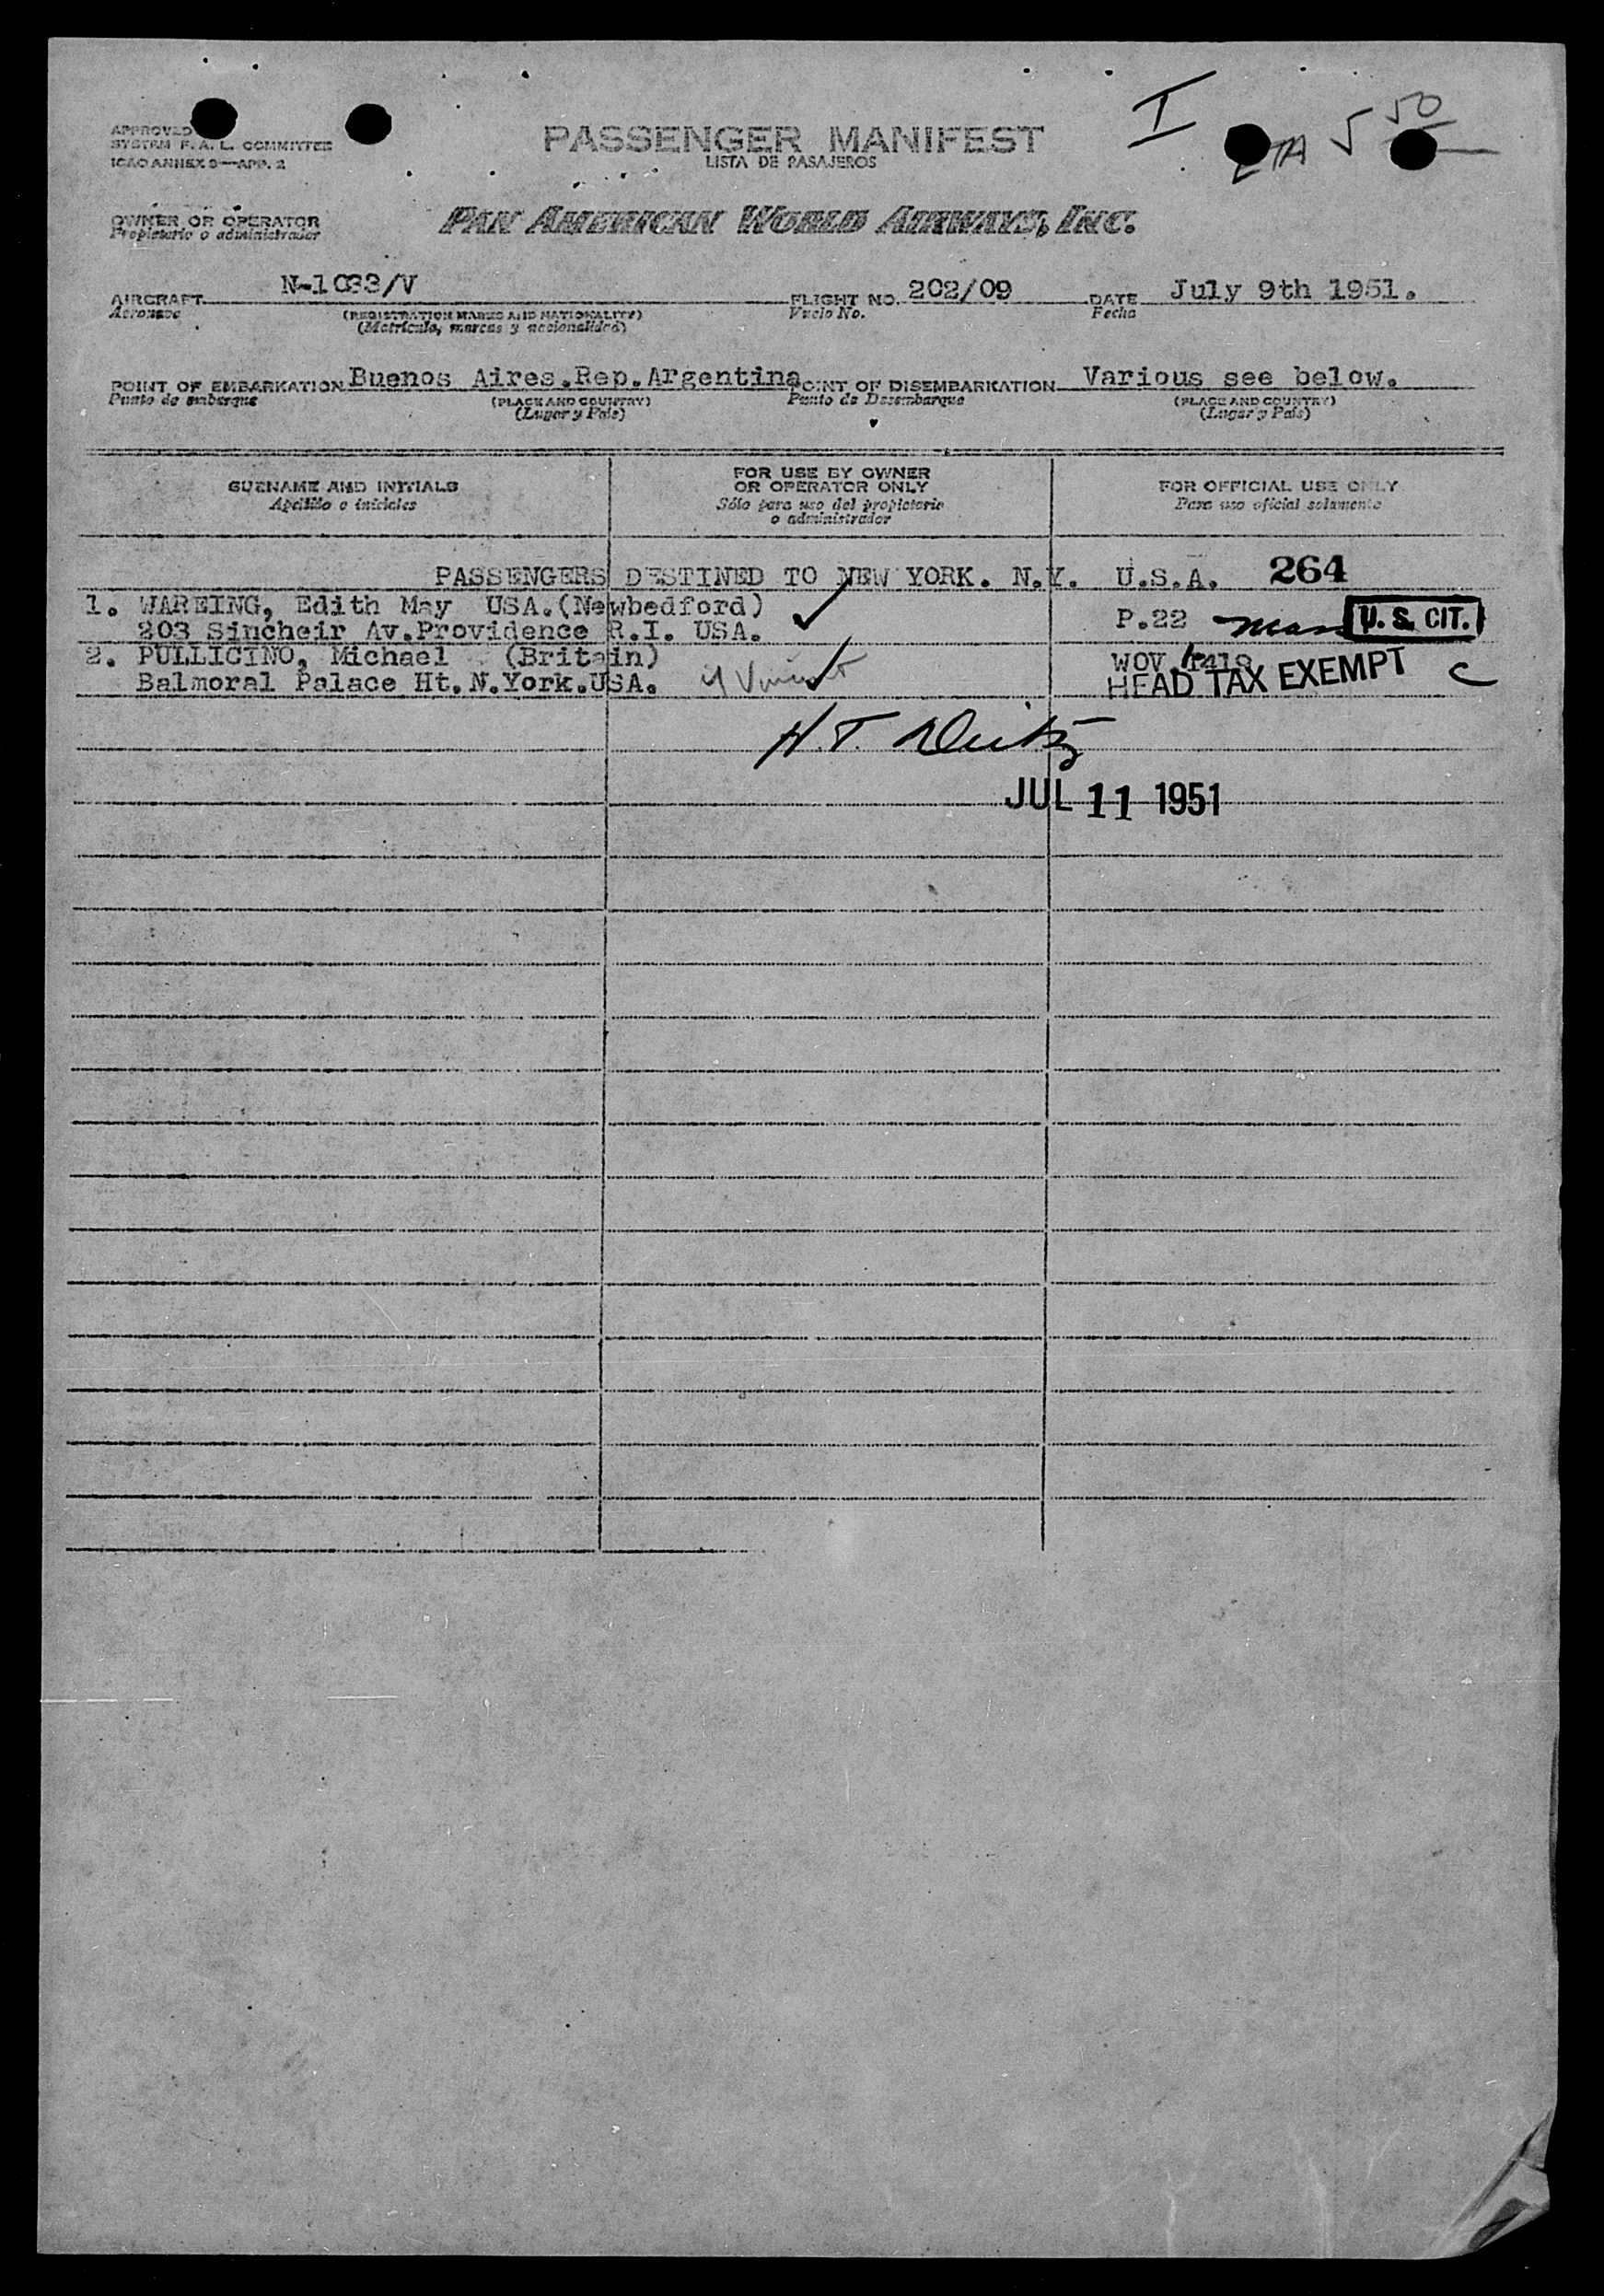 I
ETA 5 50
APPROVED
SYSTEM F. A. L. COMMITTEE
ICAO ANNEX 9—APP. 2
PASSENGER MANIFEST
LISTA DE PASAJEROS
OWNER OR OPERATOR
Propietario o administrador
PAN AMERICAN WORLD AIRWAYS, INC.
AIRCRAFT N-1033/V FLIGHT NO. 202/09 DATE July 9th 1951.
Aeronave (REGISTRATION MARKS AND NATIONALITY) Vuelo No. Fecha
(Matrícula, marcas y nacionalidad)
POINT OF EMBARKATION Buenos Aires.Rep.Argentina POINT OF DISEMBARKATION Various see below.
Punto de embarque (PLACE AND COUNTRY) Punto de Desembarque (PLACE AND COUNTRY)
(Lugar y País) (Lugar y País)
SURNAME AND INITIALS FOR USE BY OWNER OR OPERATOR ONLY FOR OFFICIAL USE ONLY
Apellido e iniciales Sólo para uso del propietario o administrador Para uso oficial solamente
PASSENGERS DESTINED TO NEW YORK. N.Y. U.S.A. 264
1. WAREING, Edith May USA.(Newbedford) P.22 Mass U. S. CIT.
203 Sincheir Av.Providence R.I. USA.
2. PULLICINO, Michael (Britain) WOV
Balmoral Palace Ht.N.York.USA. HEAD TAX EXEMPT C
H.T.
JUL 11 1951